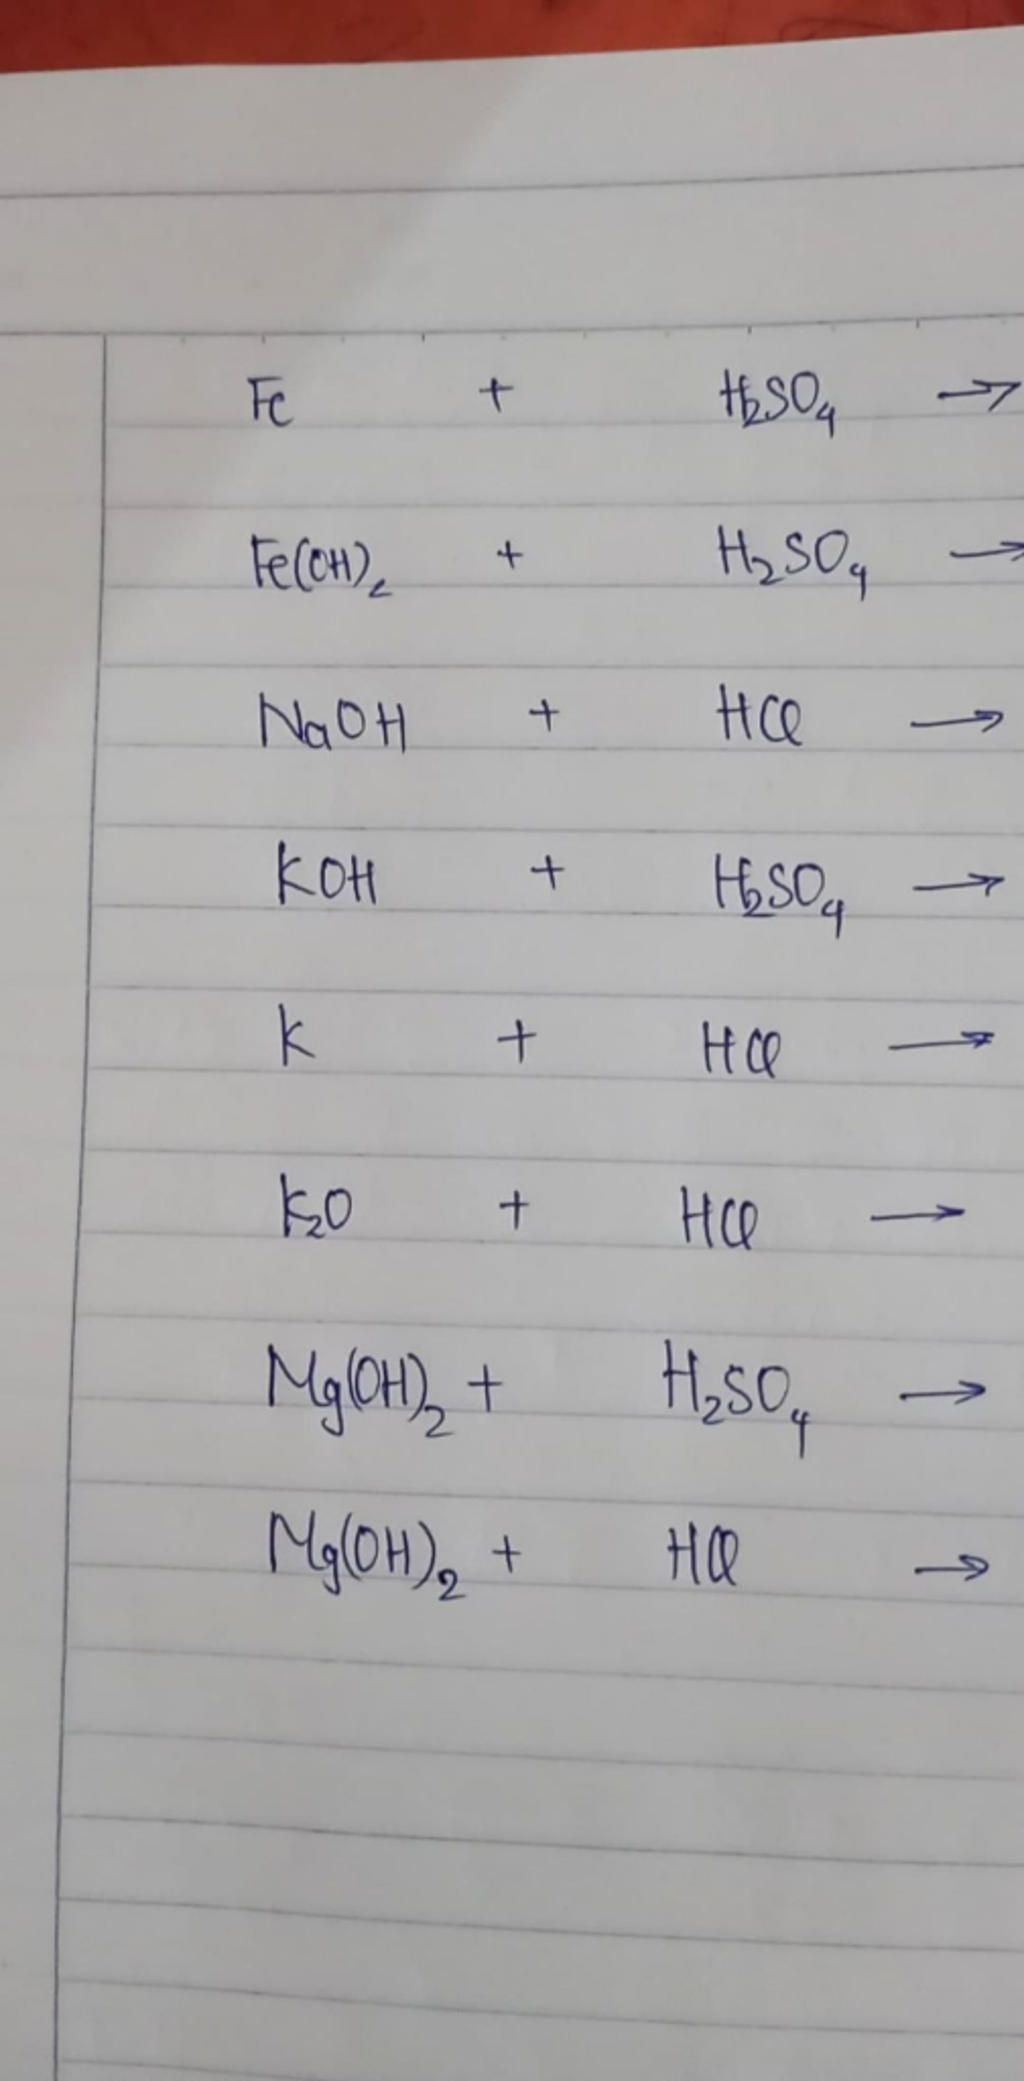 Fe + H₂SO₄ →
Fe(OH)₂ + H₂SO₄ →
NaOH + HCl →
KOH + H₂SO₄ →
K + HCl →
K₂O + HCl →
Mg(OH)₂ + H₂SO₄ →
Mg(OH)₂ + HCl →